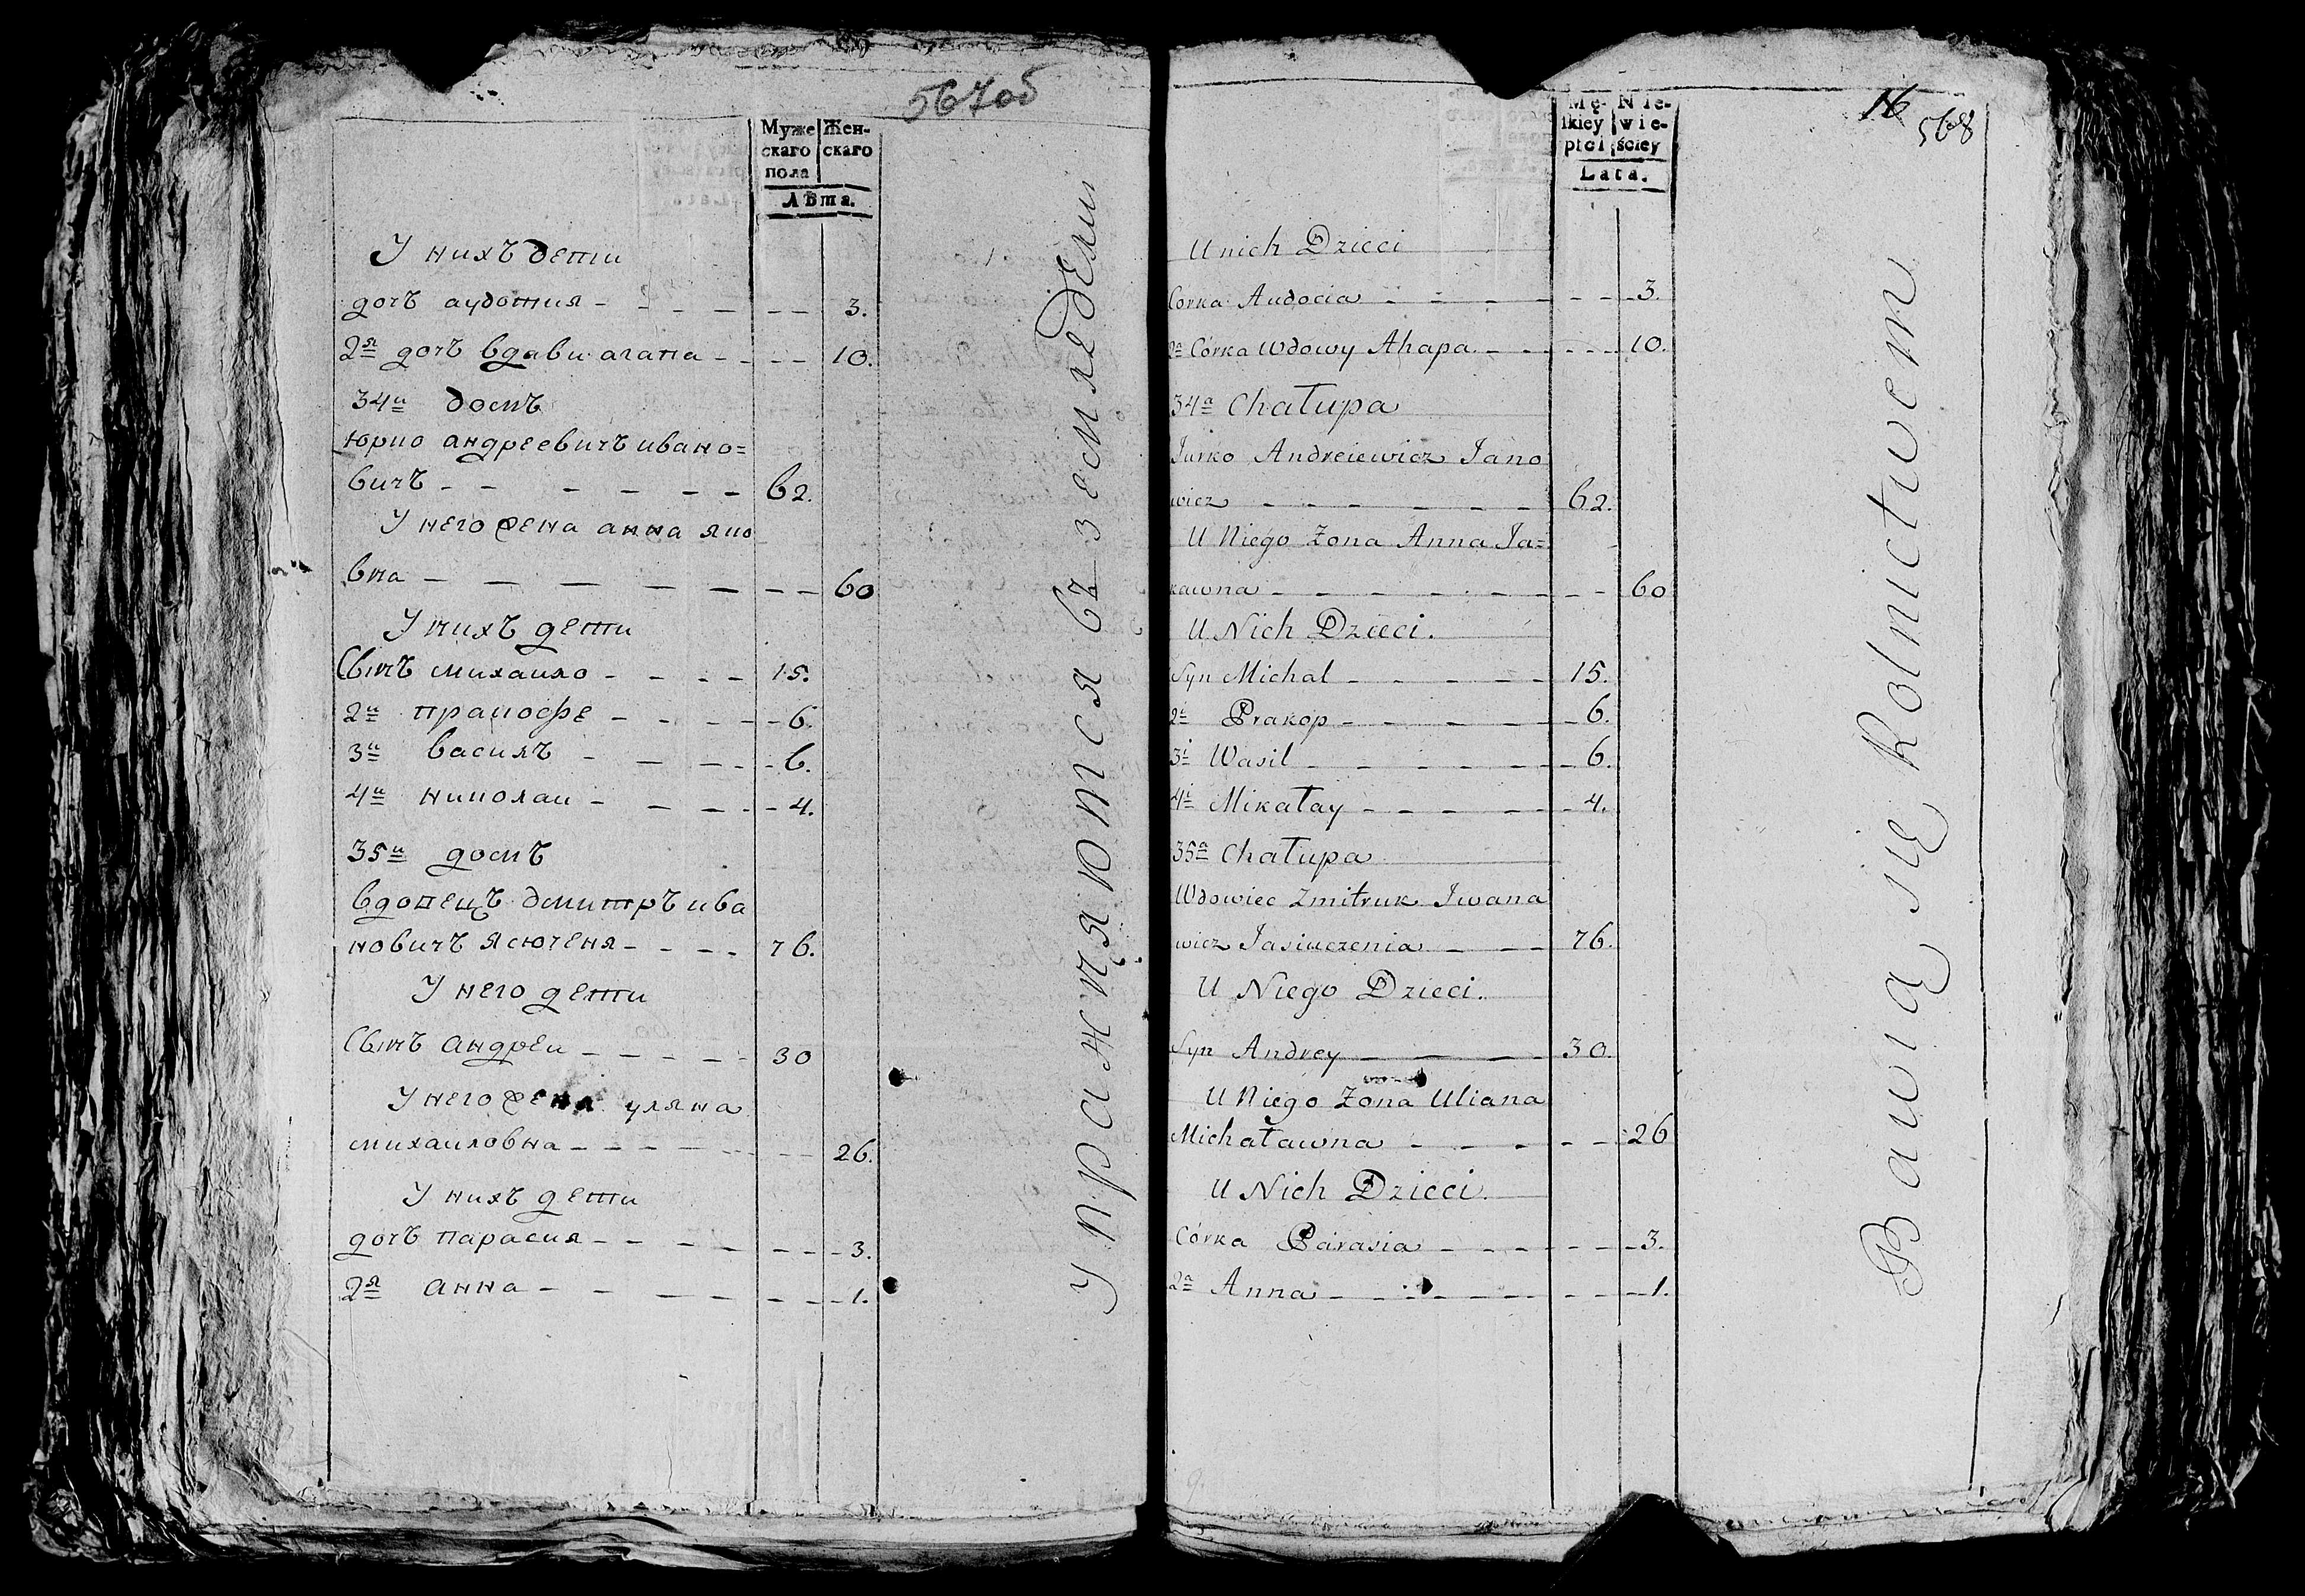 567об
Муже Жен-
скаго скаго
пола
Лѣта.
У нихъ дети
дочъ аудотия - - - - - - 3.
2я дочъ вдавы агапа - - - - 10.
34й домъ
юрко андреевичъ ивано=
вичъ - - - - - - 62.
У него жена анна яко
вна - - - - - - 60
У нихъ дети
Сынъ михаило - - - - 15.
2й пракофе - - - - - 6.
3й василъ - - - - - 6.
4й николаи - - - - - 4.
35й домъ
вдовецъ дмитръ ива
новичъ ясюченя - - - - 76.
У него дети
Сынъ андреи - - - - - 30
У него жена уляна
михаиловна - - - - - - 26.
У нихъ дети
дочъ парасия - - - - - - 3.
2я анна - - - - - - - 1.
Упражняются въ земляделии
16
568
Mę- Nie-
skiey wie-
płci ściey
Lata.
U nich Dzieci
Corka Audocia - - - - - - 3.
2a Córka Wdowy Ahapa - - - - - 10.
34a Chałupa
Jurko Andreiewicz Jano
wicz - - - - - - 62.
U Niego Zona Anna Ja=
kawna - - - - - - - - 60
U Nich Dzieci.
Syn Michal - - - - - 15.
2i Prakop - - - - - 6.
3i Wasil - - - - - - 6.
4i Mikałay - - - - - 4.
35a Chałupa
Wdowiec Zmitruk Iwana
wicz Jasiuczenia - - - 76.
U Niego Dzieci.
Syn Andrey - - - 30.
U Niego Zona Uliana
Michaławna - - - - - 26
U Nich Dzieci.
Córka Parasia - - - - - - 3.
2a Anna - - - - - - - 1.
Bawią się Rolnictwem